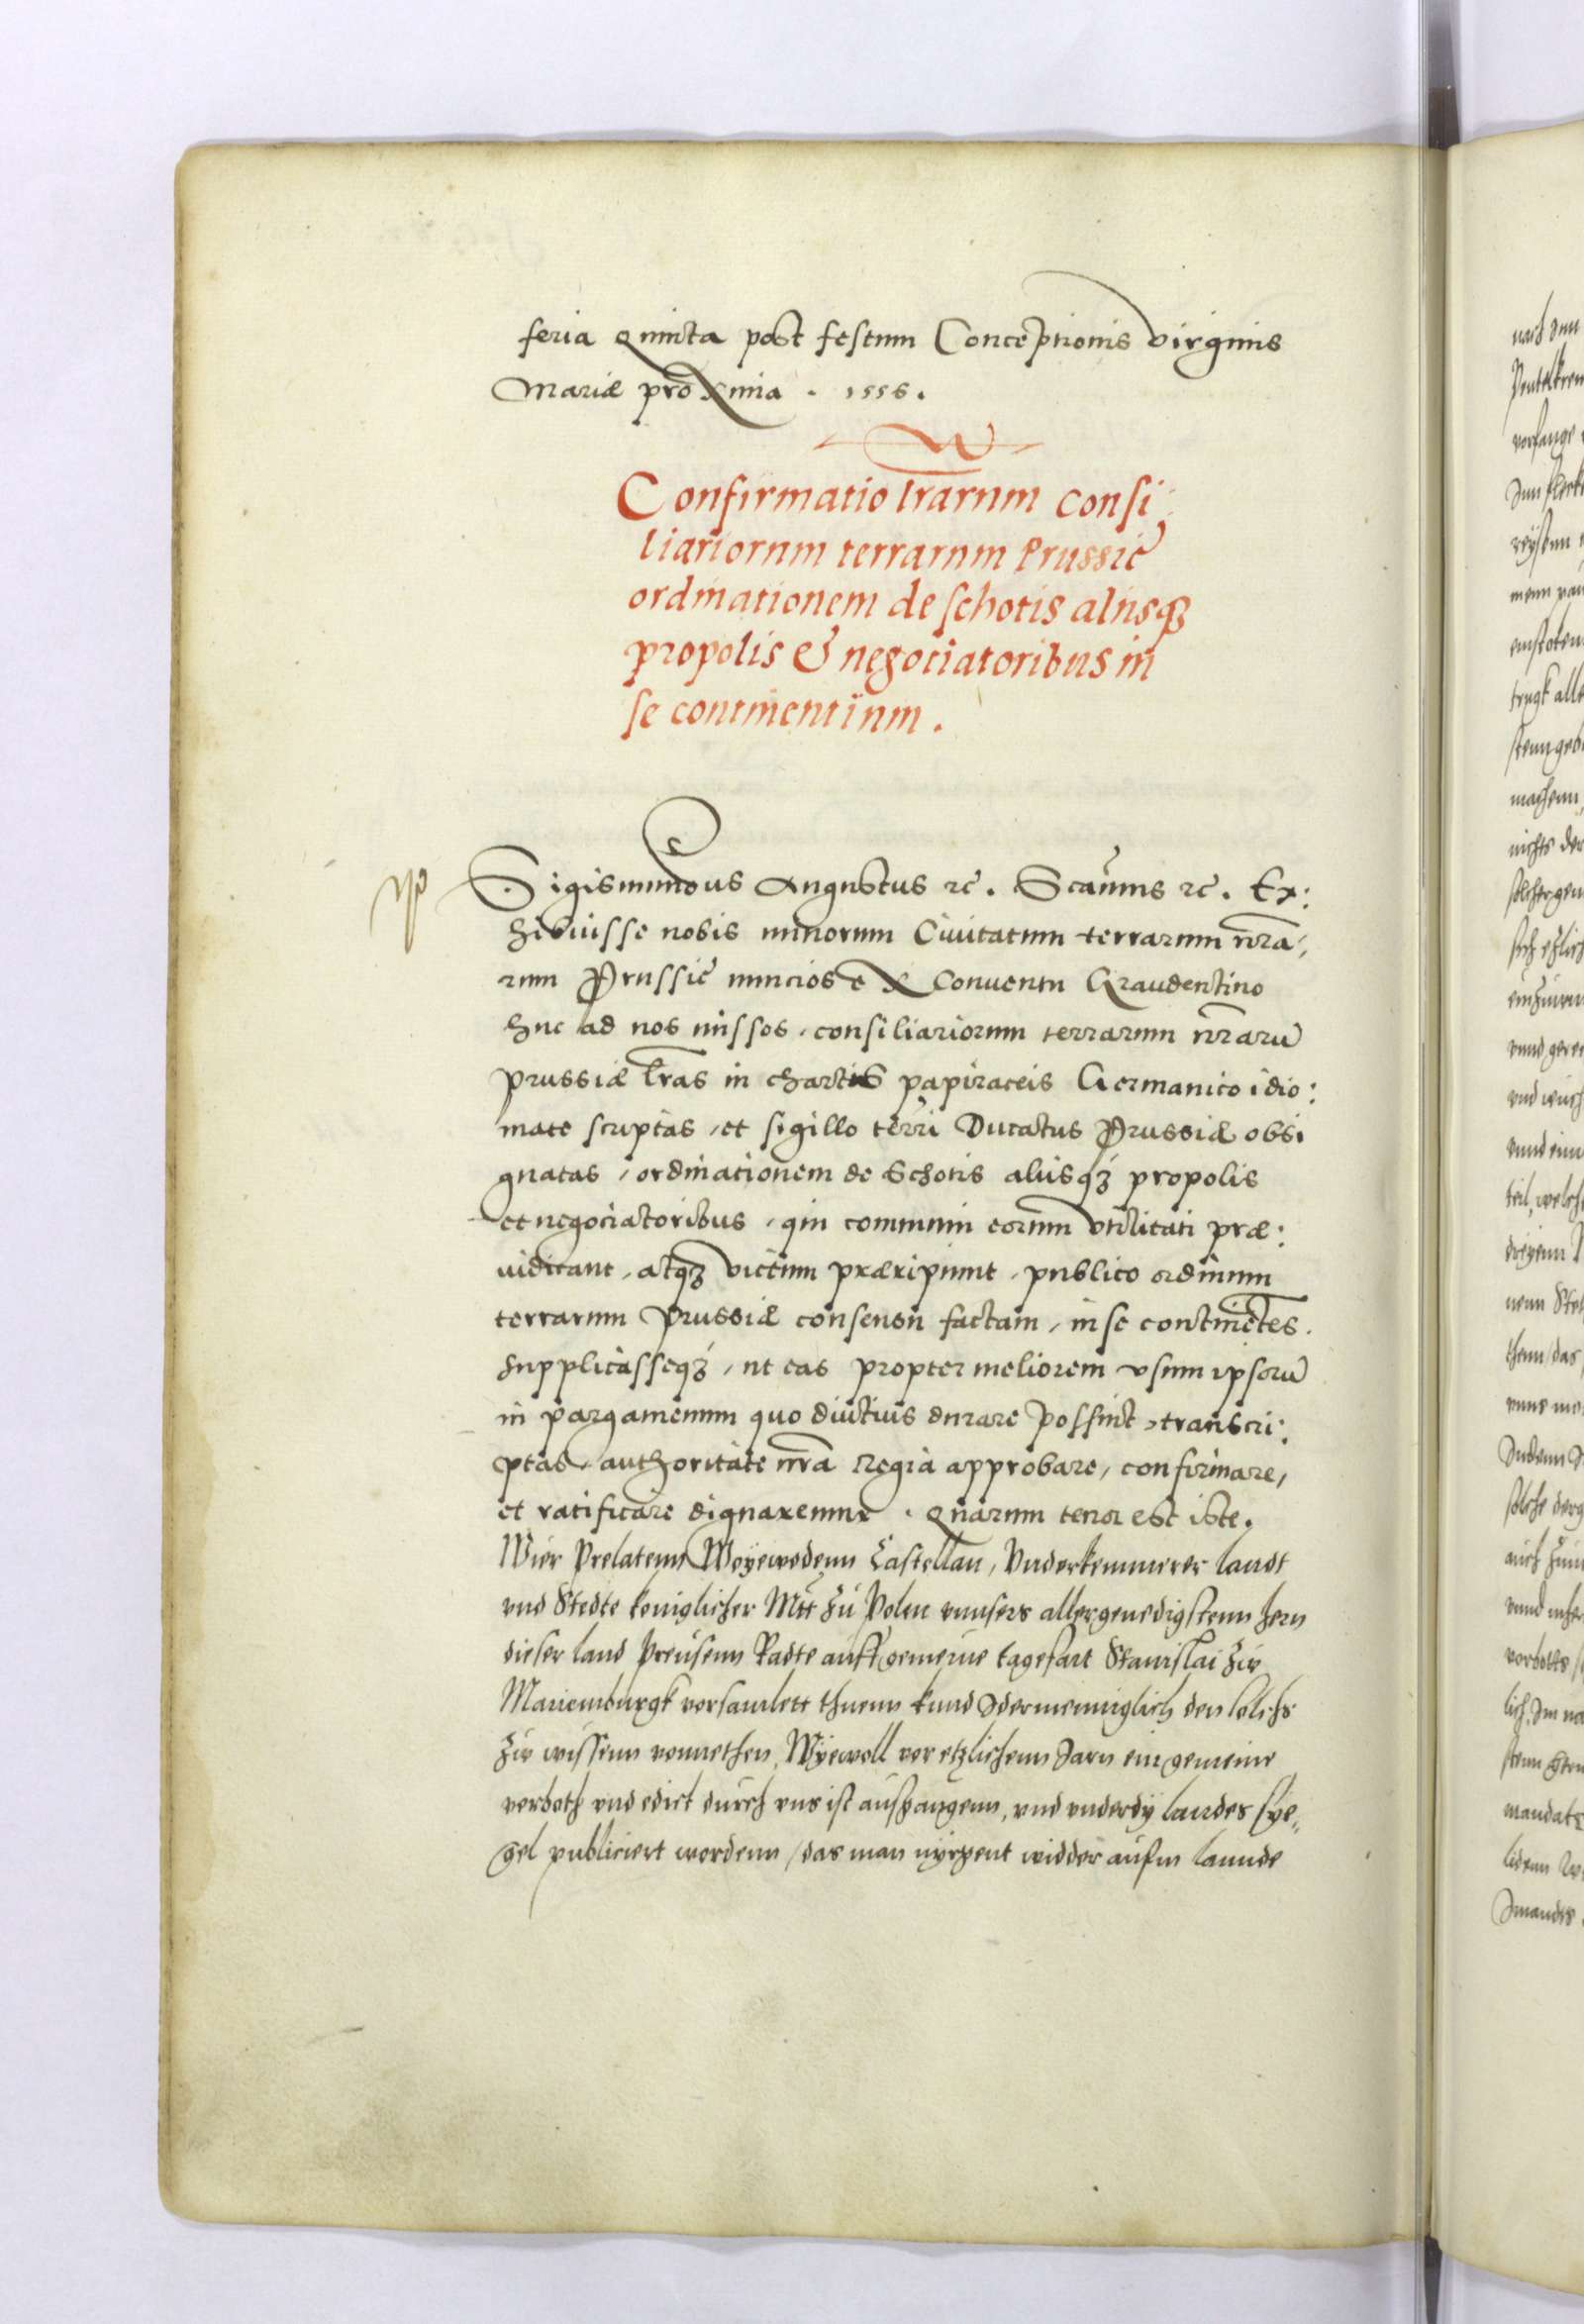 feria Quinta post festum Conceptionis virginis
Mariæ proxima . 1556 .
Confirmatio lrarum consi,
liariorum terrarum Prussie
ordinationem de schotis aliisq3
propolis & negociatoribus in
se continentium .
Sigismundus Augustus rc . Scaums rc . Ex:
hibuisse nobis minorum Ciuitatum terrarum nrã,
rum Prussie nuncios ex Conuentu Graudentino
huc ad nos missos, consiliariorum terrarum nrarũ
Prussiæ lras in chartis papiraceis Germanico idio:
mate scriptas, et sigillo terri Ducatus Prussiæ obsi
gnatas, ordinationem de Schotis aliisq3 propolis
et negociatoribus, qui communi eorum vtilitati præ:
iudicant, atq3 victum præripiunt, publico ordinum
terrarum Prussiæ consensu factam, in se continẽtes.
Supplicasseq3, ut eas propter meliorem vsum ipsorũ
in pargamenum quo diutius durare possint, transcri:
ptas, authoritate nrã Regia approbare, confirmare,
et ratificare dignaremur . Quarum tenor est iste.
Wier Prelatenn Woyewodenn Castellan, Vnderkemmerer landt
vnd Stedte koniglicher Mtt zu Polen vnnsers allergenedigstenn hern
dieser land Preusenn Radte auff gemeine tagefart Stanislai zw
Mariemburgk vorsamlett thuenn kund Idermenniglich den solichs
zw wissenn vonnethen, Wyewoll vor etzlichenn Jarn ein gemeine
verboth vnd edict durch vns ist aushangenn, vnd vnder dy landes sye,
gel publiciert wordenn, das man nyrgent widder aufm lannde